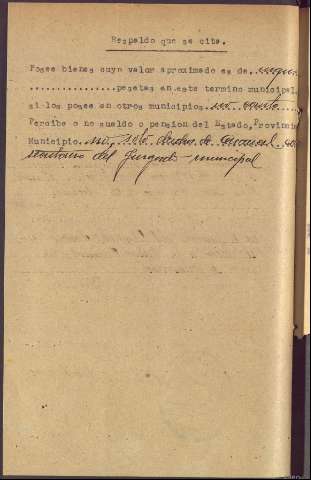 Respaldo que se cita.
Posee bienes cuyo valor aproximado es de
................pesetas en este termino municipal,
si los posee en otros municipios...
Percibe o no sueldo o pension del Estado, Provincia
Municipio... de arancel como
secretario del Juzgado municipal